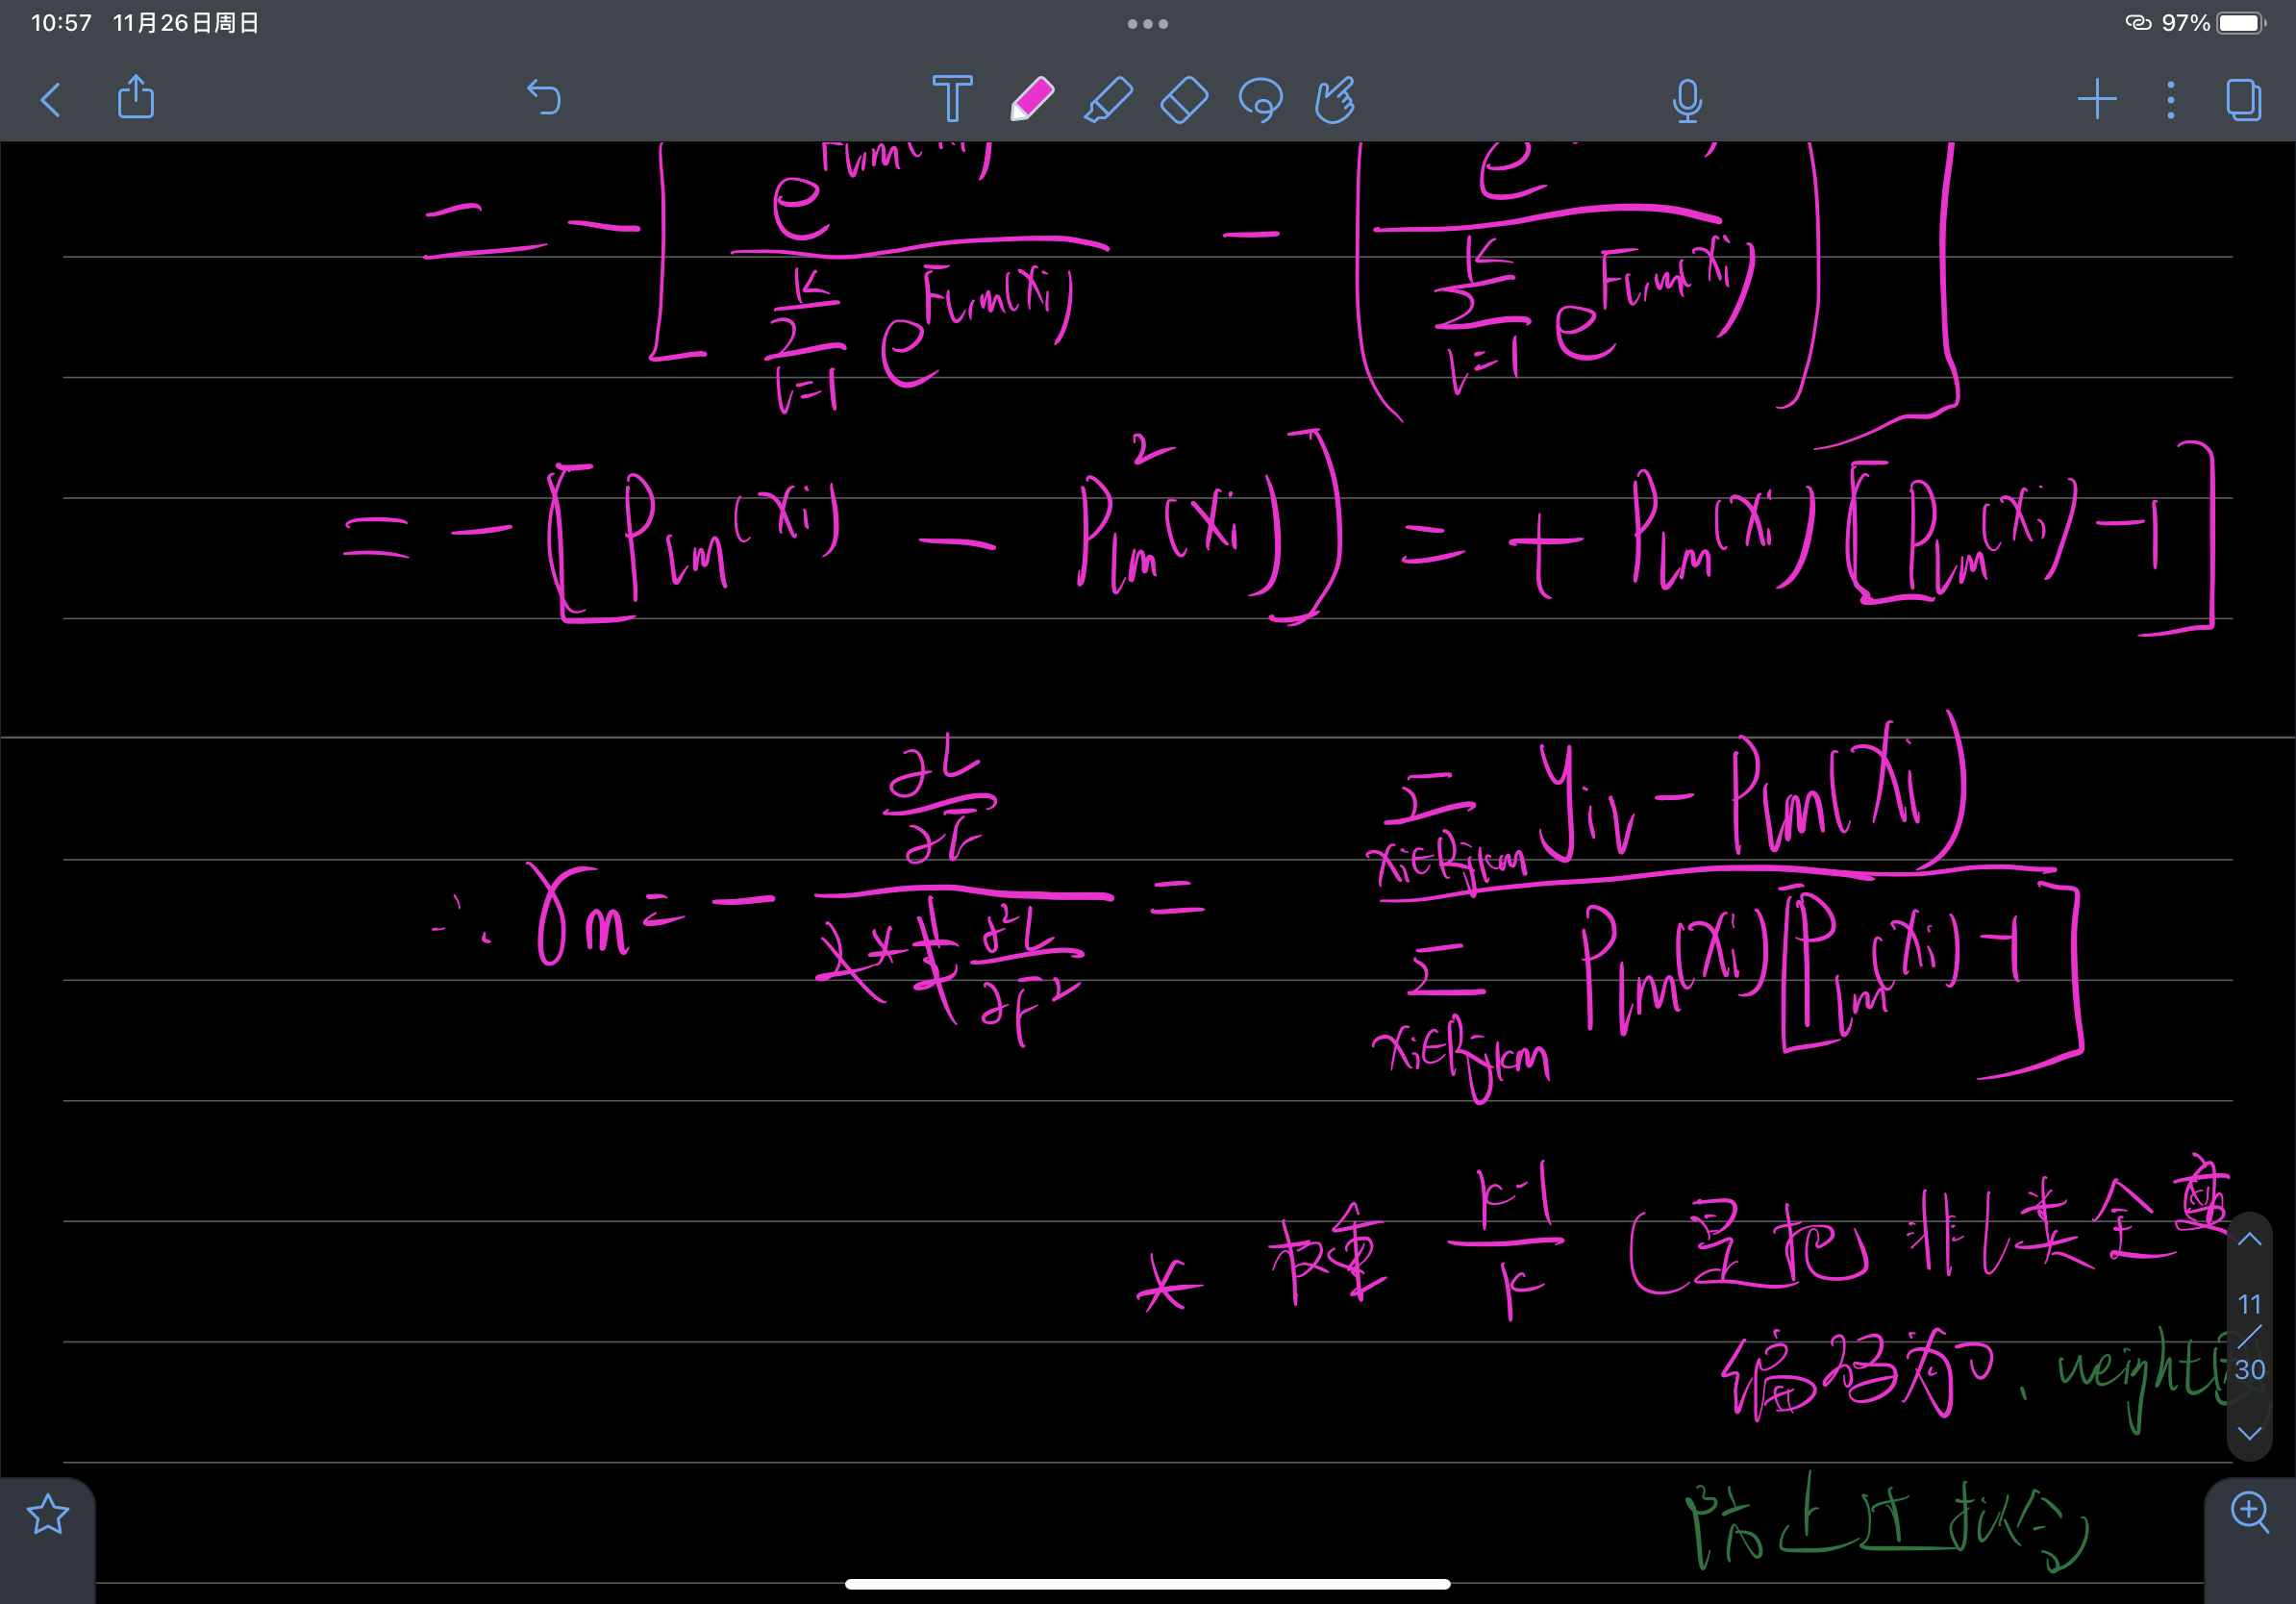 10:57 11月26日周日 97%
= - [ e^{F_{lm}(x_i)} / Σ_{l=1}^{K} e^{F_{lm}(x_i)} - ( e / Σ_{l=1}^{K} e^{F_{lm}(x_i)} ) ]
= - [ P_{lm}(x_i) - P²_{lm}(x_i) ] = + P_{lm}(x_i) [ P_{lm}(x_i) - 1 ]
∴ γ_m = - (∂L/∂F) / (∂²L/∂F²) = Σ_{x_i∈R_{jkm}} y_{il} - P_{lm}(x_i) / Σ_{x_i∈R_{jkm}} P_{lm}(x_i) [ P_{lm}(x_i) - 1 ]
* K-1 / K (是把非
编码和, weight
防止过拟合
11
30